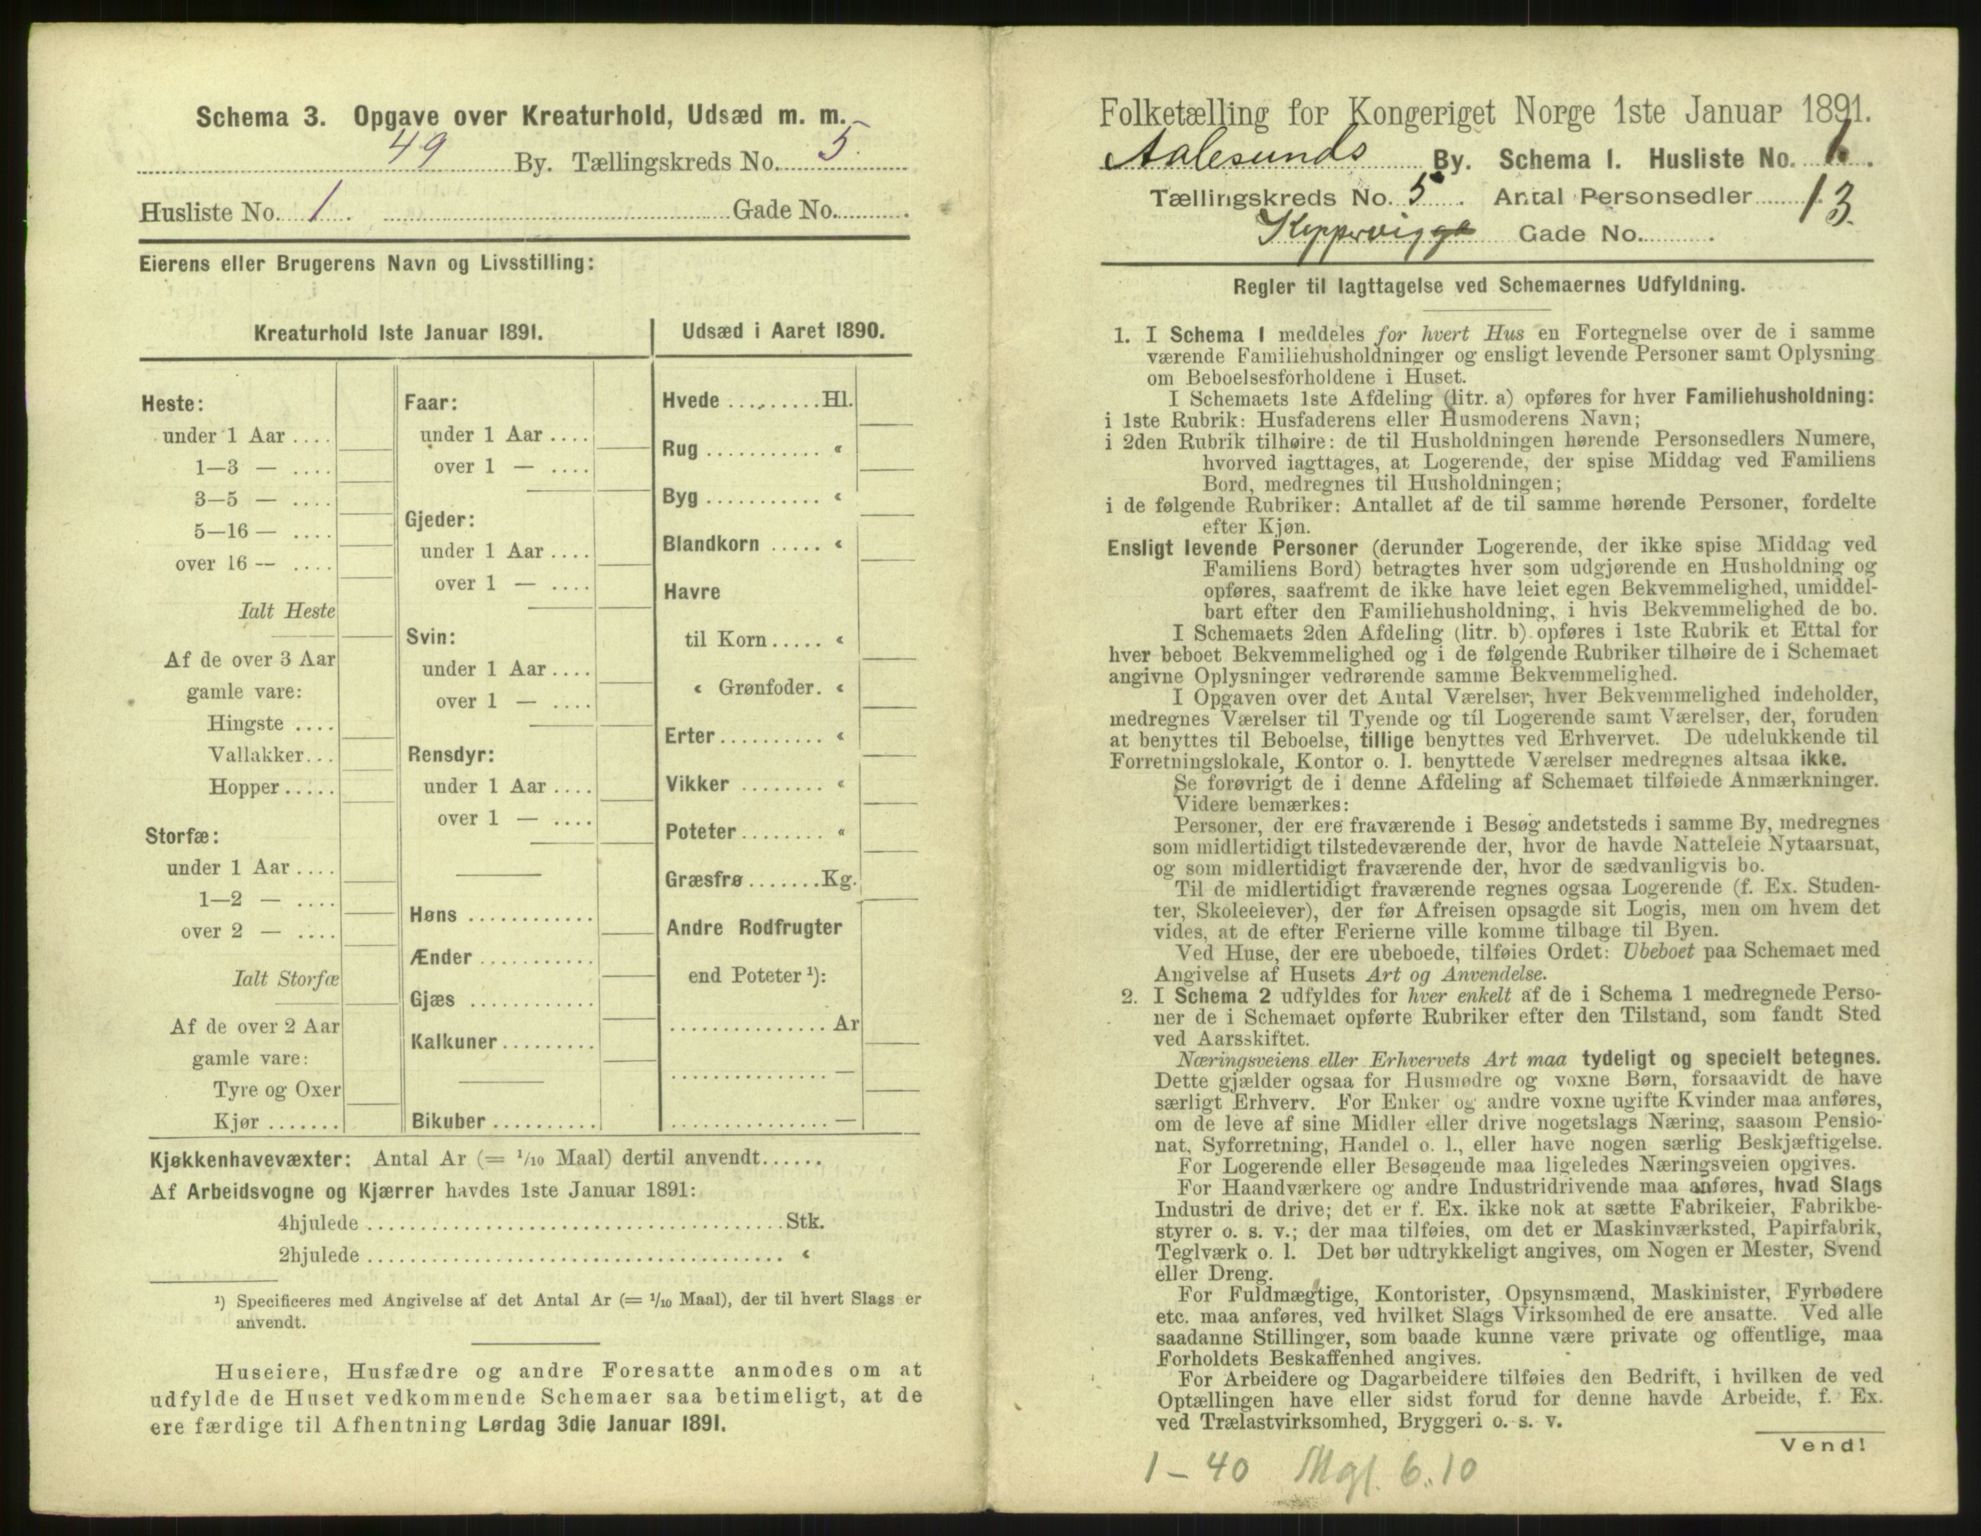 Schema 3. Opgave over Kreaturhold, Udsæd m. m.
49 By. Tællingskreds No. 5
Husliste No. 1. Gade No.
Eierens eller Brugerens Navn og Livsstilling:
Kreaturhold 1ste Januar 1891.
Heste:
under 1 Aar
1—3 —
3—5 —
5-16 —
over 16 —
Ialt Heste
Af de over 3 Aar
gamle vare:
Hingste
Vallakker
Hopper
Storfæ:
under 1 Aar
1—2 —
over 2 —
Ialt Storfæ
Af de over 2 Aar
gamle vare:
Tyre og Oxer
Kjør
Faar:
under 1 Aar
over 1 —
Gjeder:
under 1 Aar
over 1 —
Svin:
under 1 Aar
over 1 —
Rensdyr:
under 1 Aar
over 1 —
Høns
Ænder
Gjæs
Kalkuner
Bikuber
Udsæd i Aaret 1890.
Hvede Hl.
Rug «
Byg «
Blandkorn «
Havre
til Korn «
« Grønfoder. «
Erter «
Vikker «
Poteter «
Græsfrø Kg.
Andre Rodfrugter
end Poteter ¹):
Ar
—
—
Kjøkkenhavevæxter: Antal Ar (= 1/10 Maal) dertil anvendt
Af Arbeidsvogne og Kjærrer havdes 1ste Januar 1891:
4hjulede Stk.
2hjulede «
¹) Specificeres med Angivelse af det Antal Ar (= 1/10 Maal), der til hvert Slags er
anvendt.
Huseiere, Husfædre og andre Foresatte anmodes om at
udfylde de Huset vedkommende Schemaer saa betimeligt, at de
ere færdige til Afhentning Lørdag 3die Januar 1891.
Folketælling for Kongeriget Norge 1ste Januar 1891.
Aalesunds By. Schema 1. Husliste No. 1.
Tællingskreds No. 5. Antal Personsedler 13
Gade No.
Regler til Iagttagelse ved Schemaernes Udfyldning.
1. I Schema 1 meddeles for hvert Hus en Fortegnelse over de i samme
værende Familiehusholdninger og ensligt levende Personer samt Oplysning
om Beboelsesforholdene i Huset.
I Schemaets 1ste Afdeling (litr. a) opføres for hver Familiehusholdning:
i 1ste Rubrik: Husfaderens eller Husmoderens Navn;
i 2den Rubrik tilhøire: de til Husholdningen hørende Personsedlers Numere,
hvorved iagttages, at Logerende, der spise Middag ved Familiens
Bord, medregnes til Husholdningen;
i de følgende Rubriker: Antallet af de til samme hørende Personer, fordelte
efter Kjøn.
Ensligt levende Personer (derunder Logerende, der ikke spise Middag ved
Familiens Bord) betragtes hver som udgjørende en Husholdning og
opføres, saafremt de ikke have leiet egen Bekvemmelighed, umiddel-
bart efter den Familiehusholdning, i hvis Bekvemmelighed de bo.
I Schemaets 2den Afdeling (litr. b) opføres i 1ste Rubrik et Ettal for
hver beboet Bekvemmelighed og i de følgende Rubriker tilhøire de i Schemaet
angivne Oplysninger vedrørende samme Bekvemmelighed.
I Opgaven over det Antal Værelser, hver Bekvemmelighed indeholder,
medregnes Værelser til Tyende og til Logerende samt Værelser, der, foruden
at benyttes til Beboelse, tillige benyttes ved Erhvervet. De udelukkende til
Forretningslokale, Kontor o. l. benyttede Værelser medregnes altsaa ikke.
Se forøvrigt de i denne Afdeling af Schemaet tilføiede Anmærkninger.
Videre bemærkes:
Personer, der ere fraværende i Besøg andetsteds i samme By, medregnes
som midlertidigt tilstedeværende der, hvor de havde Natteleie Nytaarsnat,
og som midlertidigt fraværende der, hvor de sædvanligvis bo.
Til de midlertidigt fraværende regnes ogsaa Logerende (f. Ex. Studen-
ter, Skoleelever), der før Afreisen opsagde sit Logis, men om hvem det
vides, at de efter Ferierne ville komme tilbage til Byen.
Ved Huse, der ere ubeboede, tilføies Ordet: Ubeboet paa Schemaet med
Angivelse af Husets Art og Anvendelse.
2. I Schema 2 udfyldes for hver enkelt af de i Schema 1 medregnede Perso-
ner de i Schemaet opførte Rubriker efter den Tilstand, som fandt Sted
ved Aarsskiftet.
Næringsveiens eller Erhvervets Art maa tydeligt og specielt betegnes.
Dette gjælder ogsaa for Husmødre og voxne Børn, forsaavidt de have
særligt Erhverv. For Enker og andre voxne ugifte Kvinder maa anføres,
om de leve af sine Midler eller drive nogetslags Næring, saasom Pensio-
nat, Syforretning, Handel o. l., eller have nogen særlig Beskjæftigelse.
For Logerende eller Besøgende maa ligeledes Næringsveien opgives.
For Haandværkere og andre Industridrivende maa anføres, hvad Slags
Industri de drive; det er f. Ex. ikke nok at sætte Fabrikeier, Fabrikbe-
styrer o. s. v.; der maa tilføies, om det er Maskinværksted, Papirfabrik,
Teglværk o. l. Det bør udtrykkeligt angives, om Nogen er Mester, Svend
eller Dreng.
For Fuldmægtige, Kontorister, Opsynsmænd, Maskinister, Fyrbødere
etc. maa anføres, ved hvilket Slags Virksomhed de ere ansatte. Ved alle
saadanne Stillinger, som baade kunne være private og offentlige, maa
Forholdets Beskaffenhed angives.
For Arbeidere og Dagarbeidere tilføies den Bedrift, i hvilken de ved
Optællingen have eller sidst forud for denne havde Arbeide, f. Ex.
ved Trælastvirksomhed, Bryggeri o. s. v.
Vend!
1-40 Mgl. 6.10